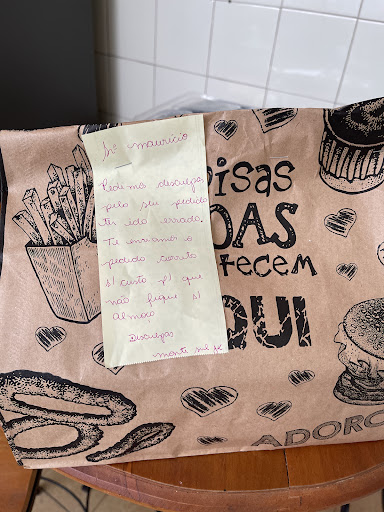 Sr maurício
Pedimos desculpa
pelo seu pedido
ter ido errado.
Te enviamos o
pedido correto
s/ custo p/ que
não fique s/
almoço
Desculpas
OISAS
OAS
TECEM
QUI
ADORO